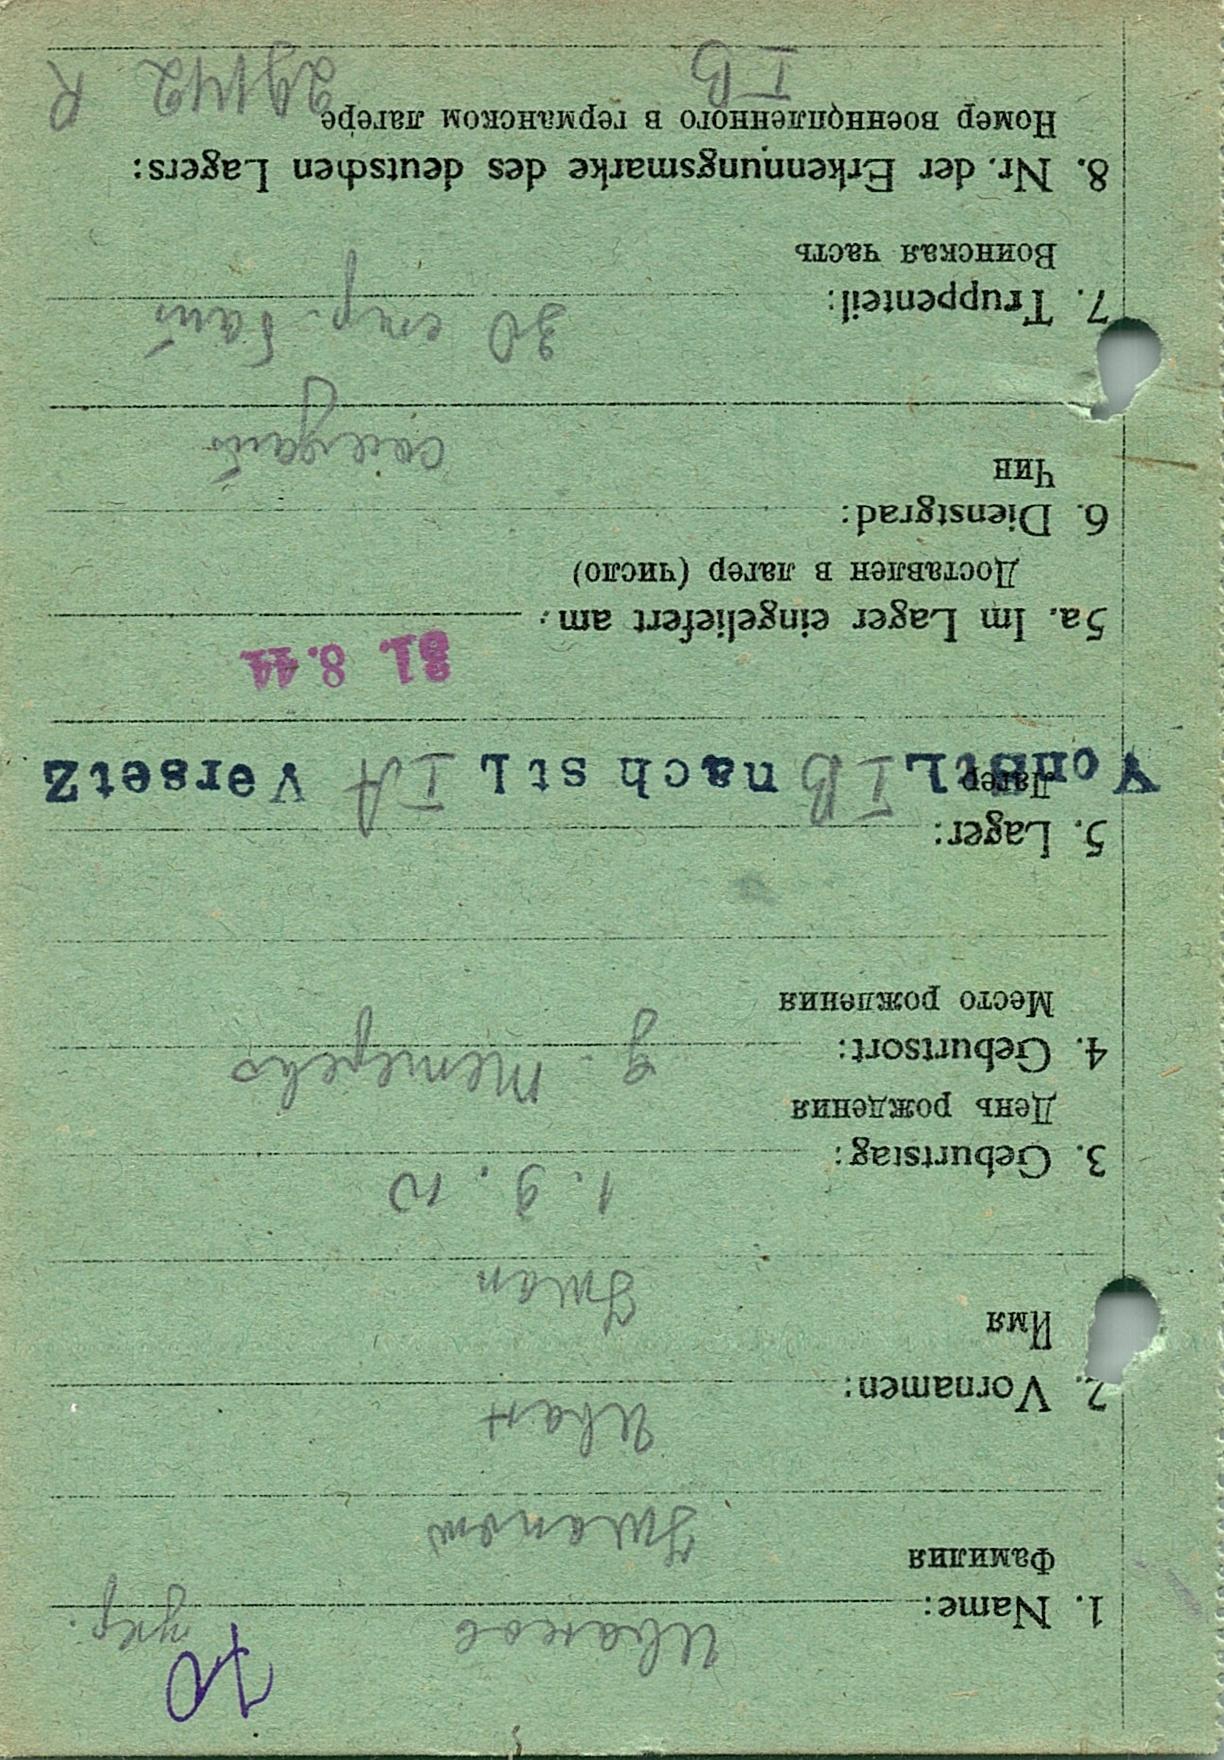 70
1. Name: Иванов укр.
Фамилия
Iwanow
2. Vornamen: Иван
Имя
Iwan
3. Geburtstag: 1. 9. 10
День рождения
4. Geburtsort: г.
Место рождения
5. Lager:
Лагерь
Von StL IB nach StL IA versetz
31. 8. 44
5a. Im Lager eingeliefert am:
Доставлен в лагер (число)
6. Dienstgrad:
Чин
солдат
7. Truppenteil: 30 стр. бат
Воинская часть
8. Nr. der Erkennungsmarke des deutschen Lagers:
Номер военнопленного в германском лагере
IB 29142 R